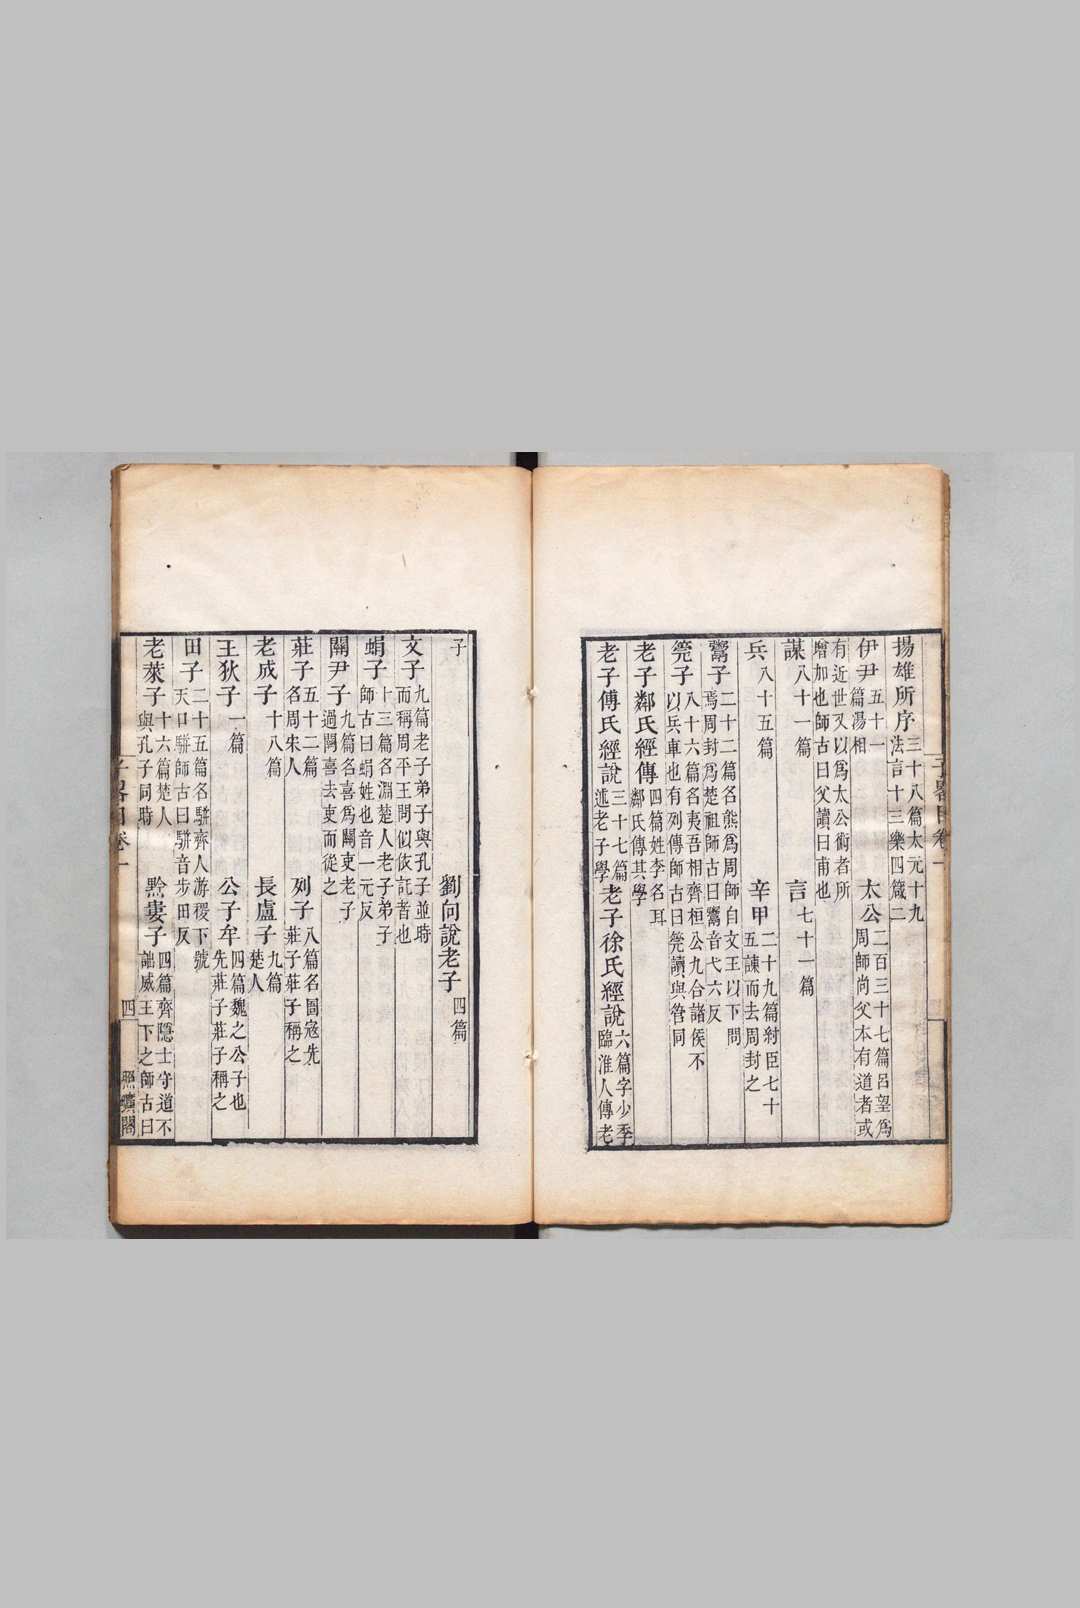 揚雄所序三十八篇太元十九
法言十三樂四箴二
伊尹五十一
篇湯相
太公二百三十七篇呂望爲
周師尚父本有道者或
有近世又以爲太公術者所
增加也師古曰父讀曰甫也
謀八十一篇
言七十一篇
兵八十五篇
辛甲二十九篇紂臣七十
五諫而去周封之
鬻子二十二篇名熊爲周師自文王以下問
焉周封爲楚祖師古曰鬻音弋六反
筦子八十六篇名夷吾相齊桓公九合諸侯不
以兵車也有列傳師古曰筦讀與管同
老子鄰氏經傳四篇姓李名耳
鄰氏傳其學
老子傅氏經說三十七篇
述老子學
老子徐氏經說六篇字少季
臨淮人傳老
子畧目卷一
子
劉向說老子四篇
文子九篇老子弟子與孔子並時
而稱周平王問似依託者也
蜎子十三篇名淵楚人老子弟子
師古曰蜎姓也音一元反
關尹子九篇名喜爲關吏老子
過關喜去吏而從之
莊子五十二篇
名周宋人
列子八篇名圄寇先
莊子莊子稱之
老成子十八篇
長盧子九篇
楚人
王狄子一篇
公子牟四篇魏之公子也
先莊子莊子稱之
田子二十五篇名駢齊人游稷下號
天口駢師古曰駢音步田反
老萊子十六篇楚人
與孔子同時
黔婁子四篇齊隱士守道不
詘威王下之師古曰
子畧目卷一
四
照曠閣